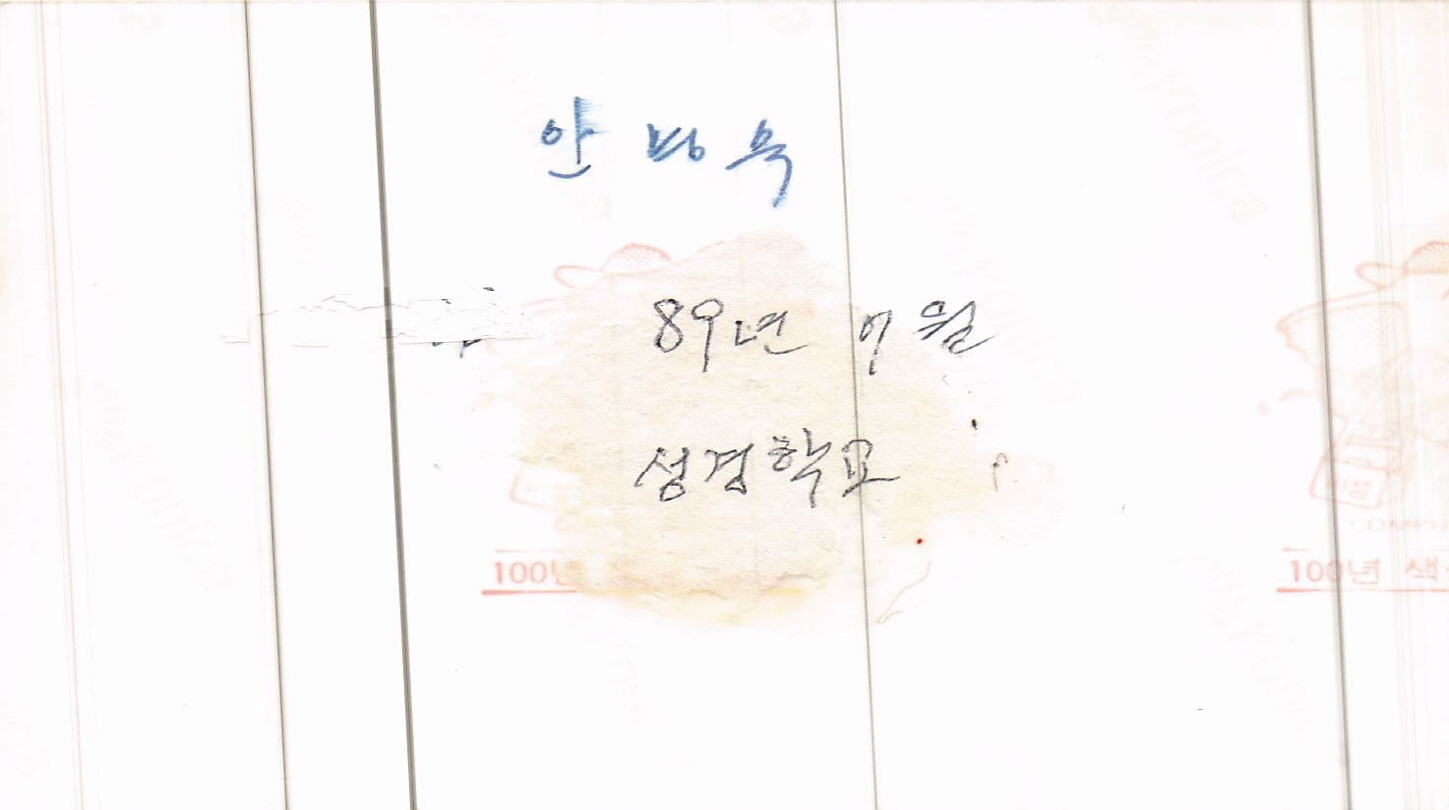 안 병 욱
89년 7월
성경학교
100년
100년 색